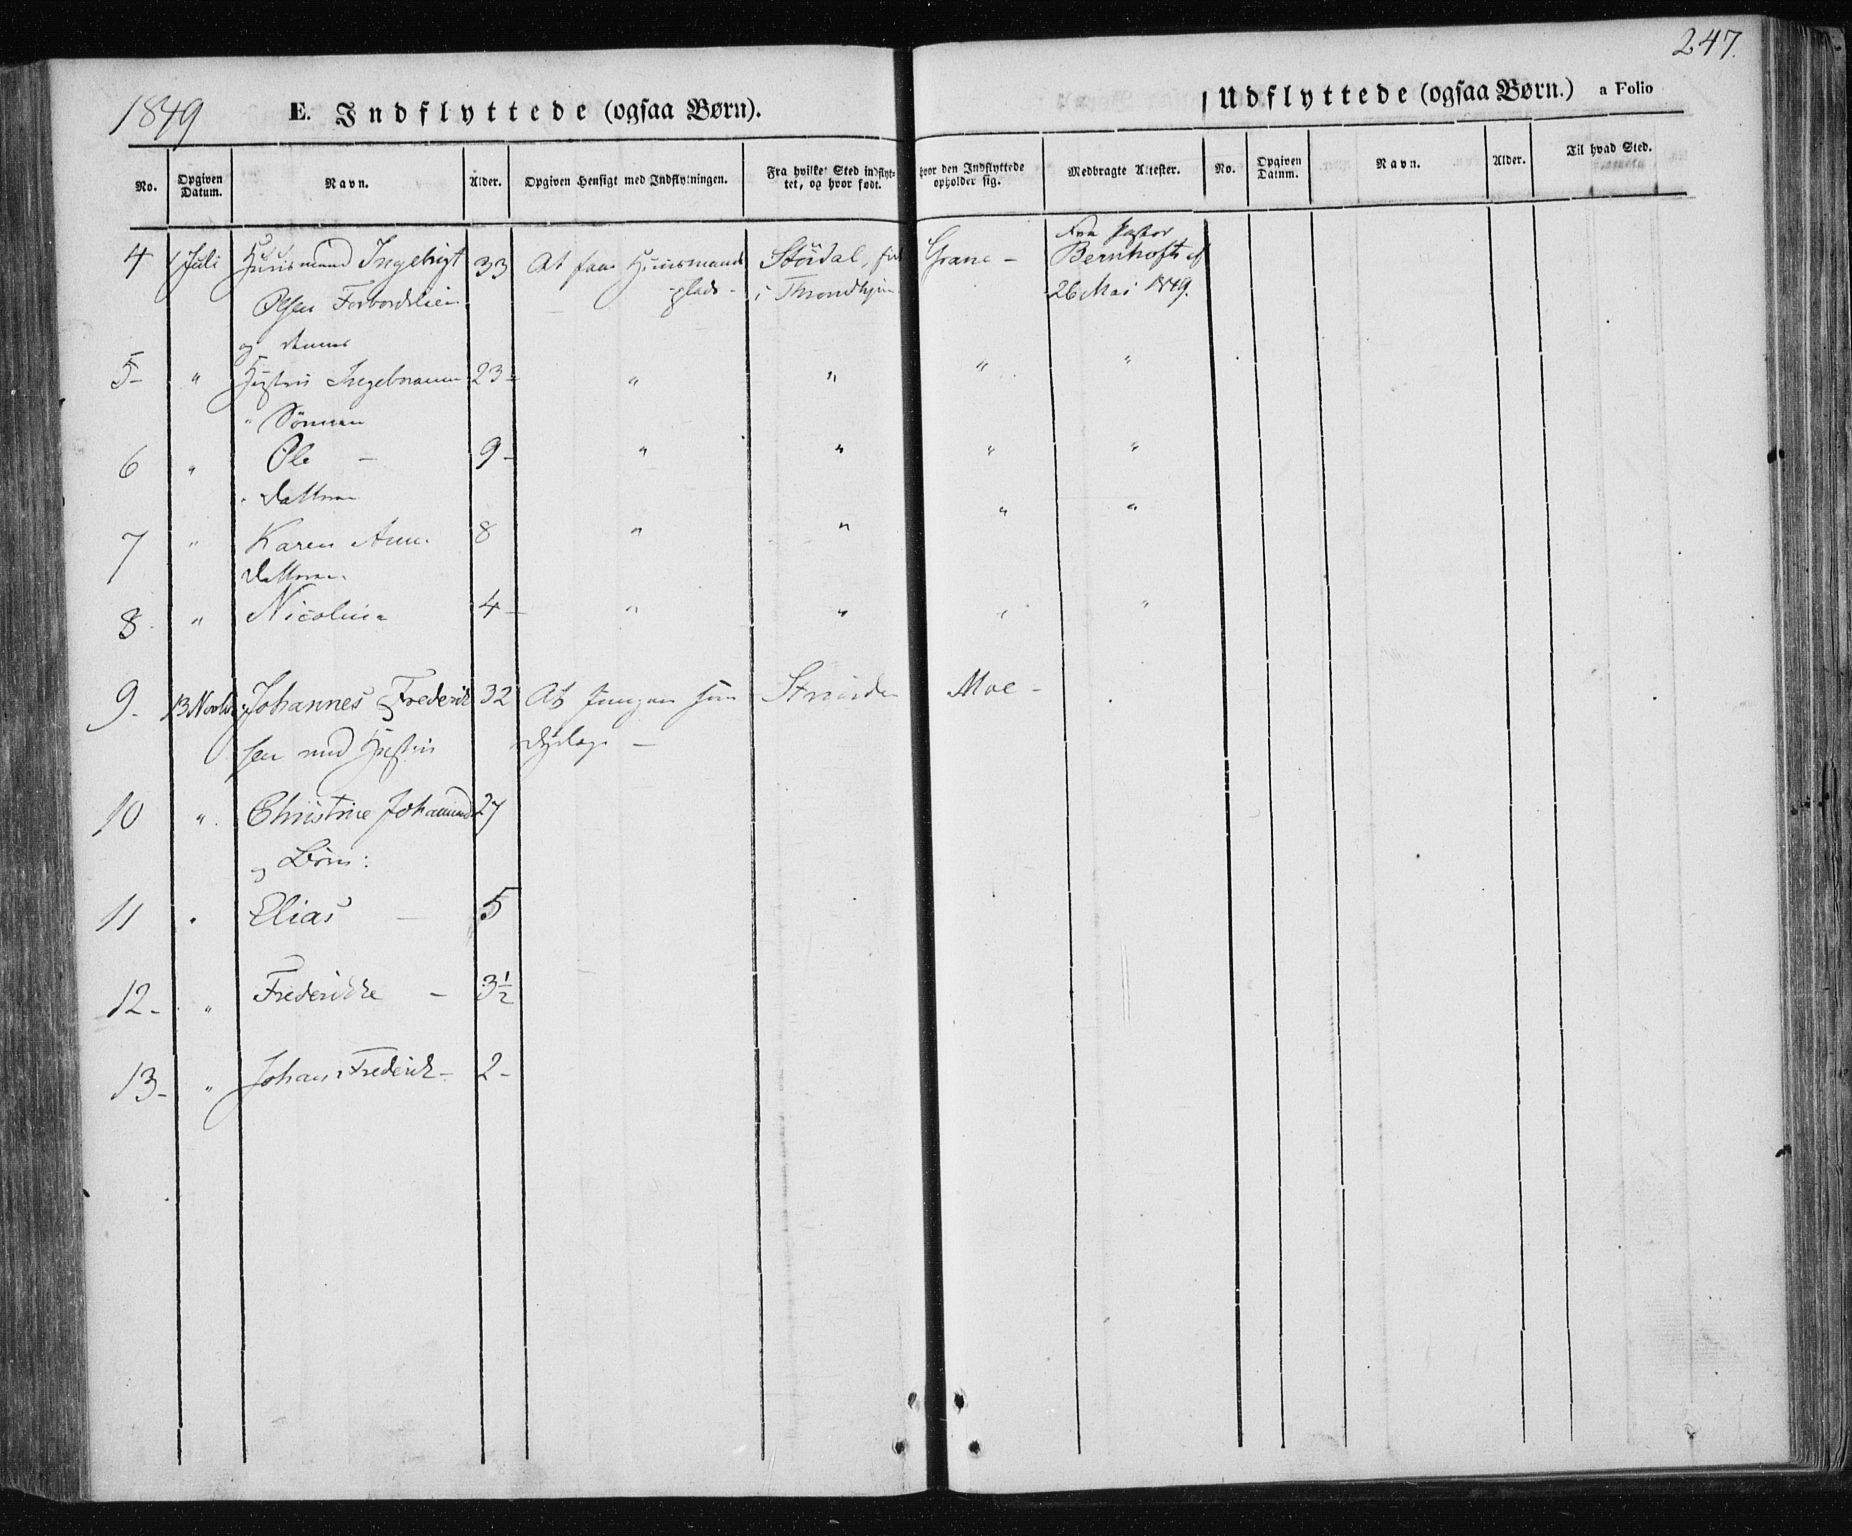 247.
1849
E. Indflyttede (ogsaa Børn).
Udflyttede (ogsaa Børn.) a Folio
No. Opgiven Datum. Navn. Alder. Opgiven Hensigt med Indflytningen. Fra hvilket Sted indflyttet, og hvor født. hvor den Indflyttede opholder sig. Medbragte Attester. No. Opgiven Datum. Navn. Alder. Til hvad Sted.
Fra Pastor
4 1 Juli Huusmand Ingebrigt 33 At faae Huusmands Stördal, født Grane - Bernhoft af
Olsen Forbordslien -plads- i Throndhjem 26 Mai 1849.
og dennes
5- " Hustru Ingeboranna 23- " " " "
" Sönnen
6 " Ole - 9- " " " "
" Datteren
7 " Karen Anna 8 " " " "
Datteren
8. " Nicolina 4- " " " "
9. 13 Novbr Johannes Frederik 32 At som Strinden Moe -
sen med Hustru
10 " Christine Johannesd 27
og Børn:
11 " Elias - 5
12- " Frederikke - 3½
13- " Johan Frederik- 2-